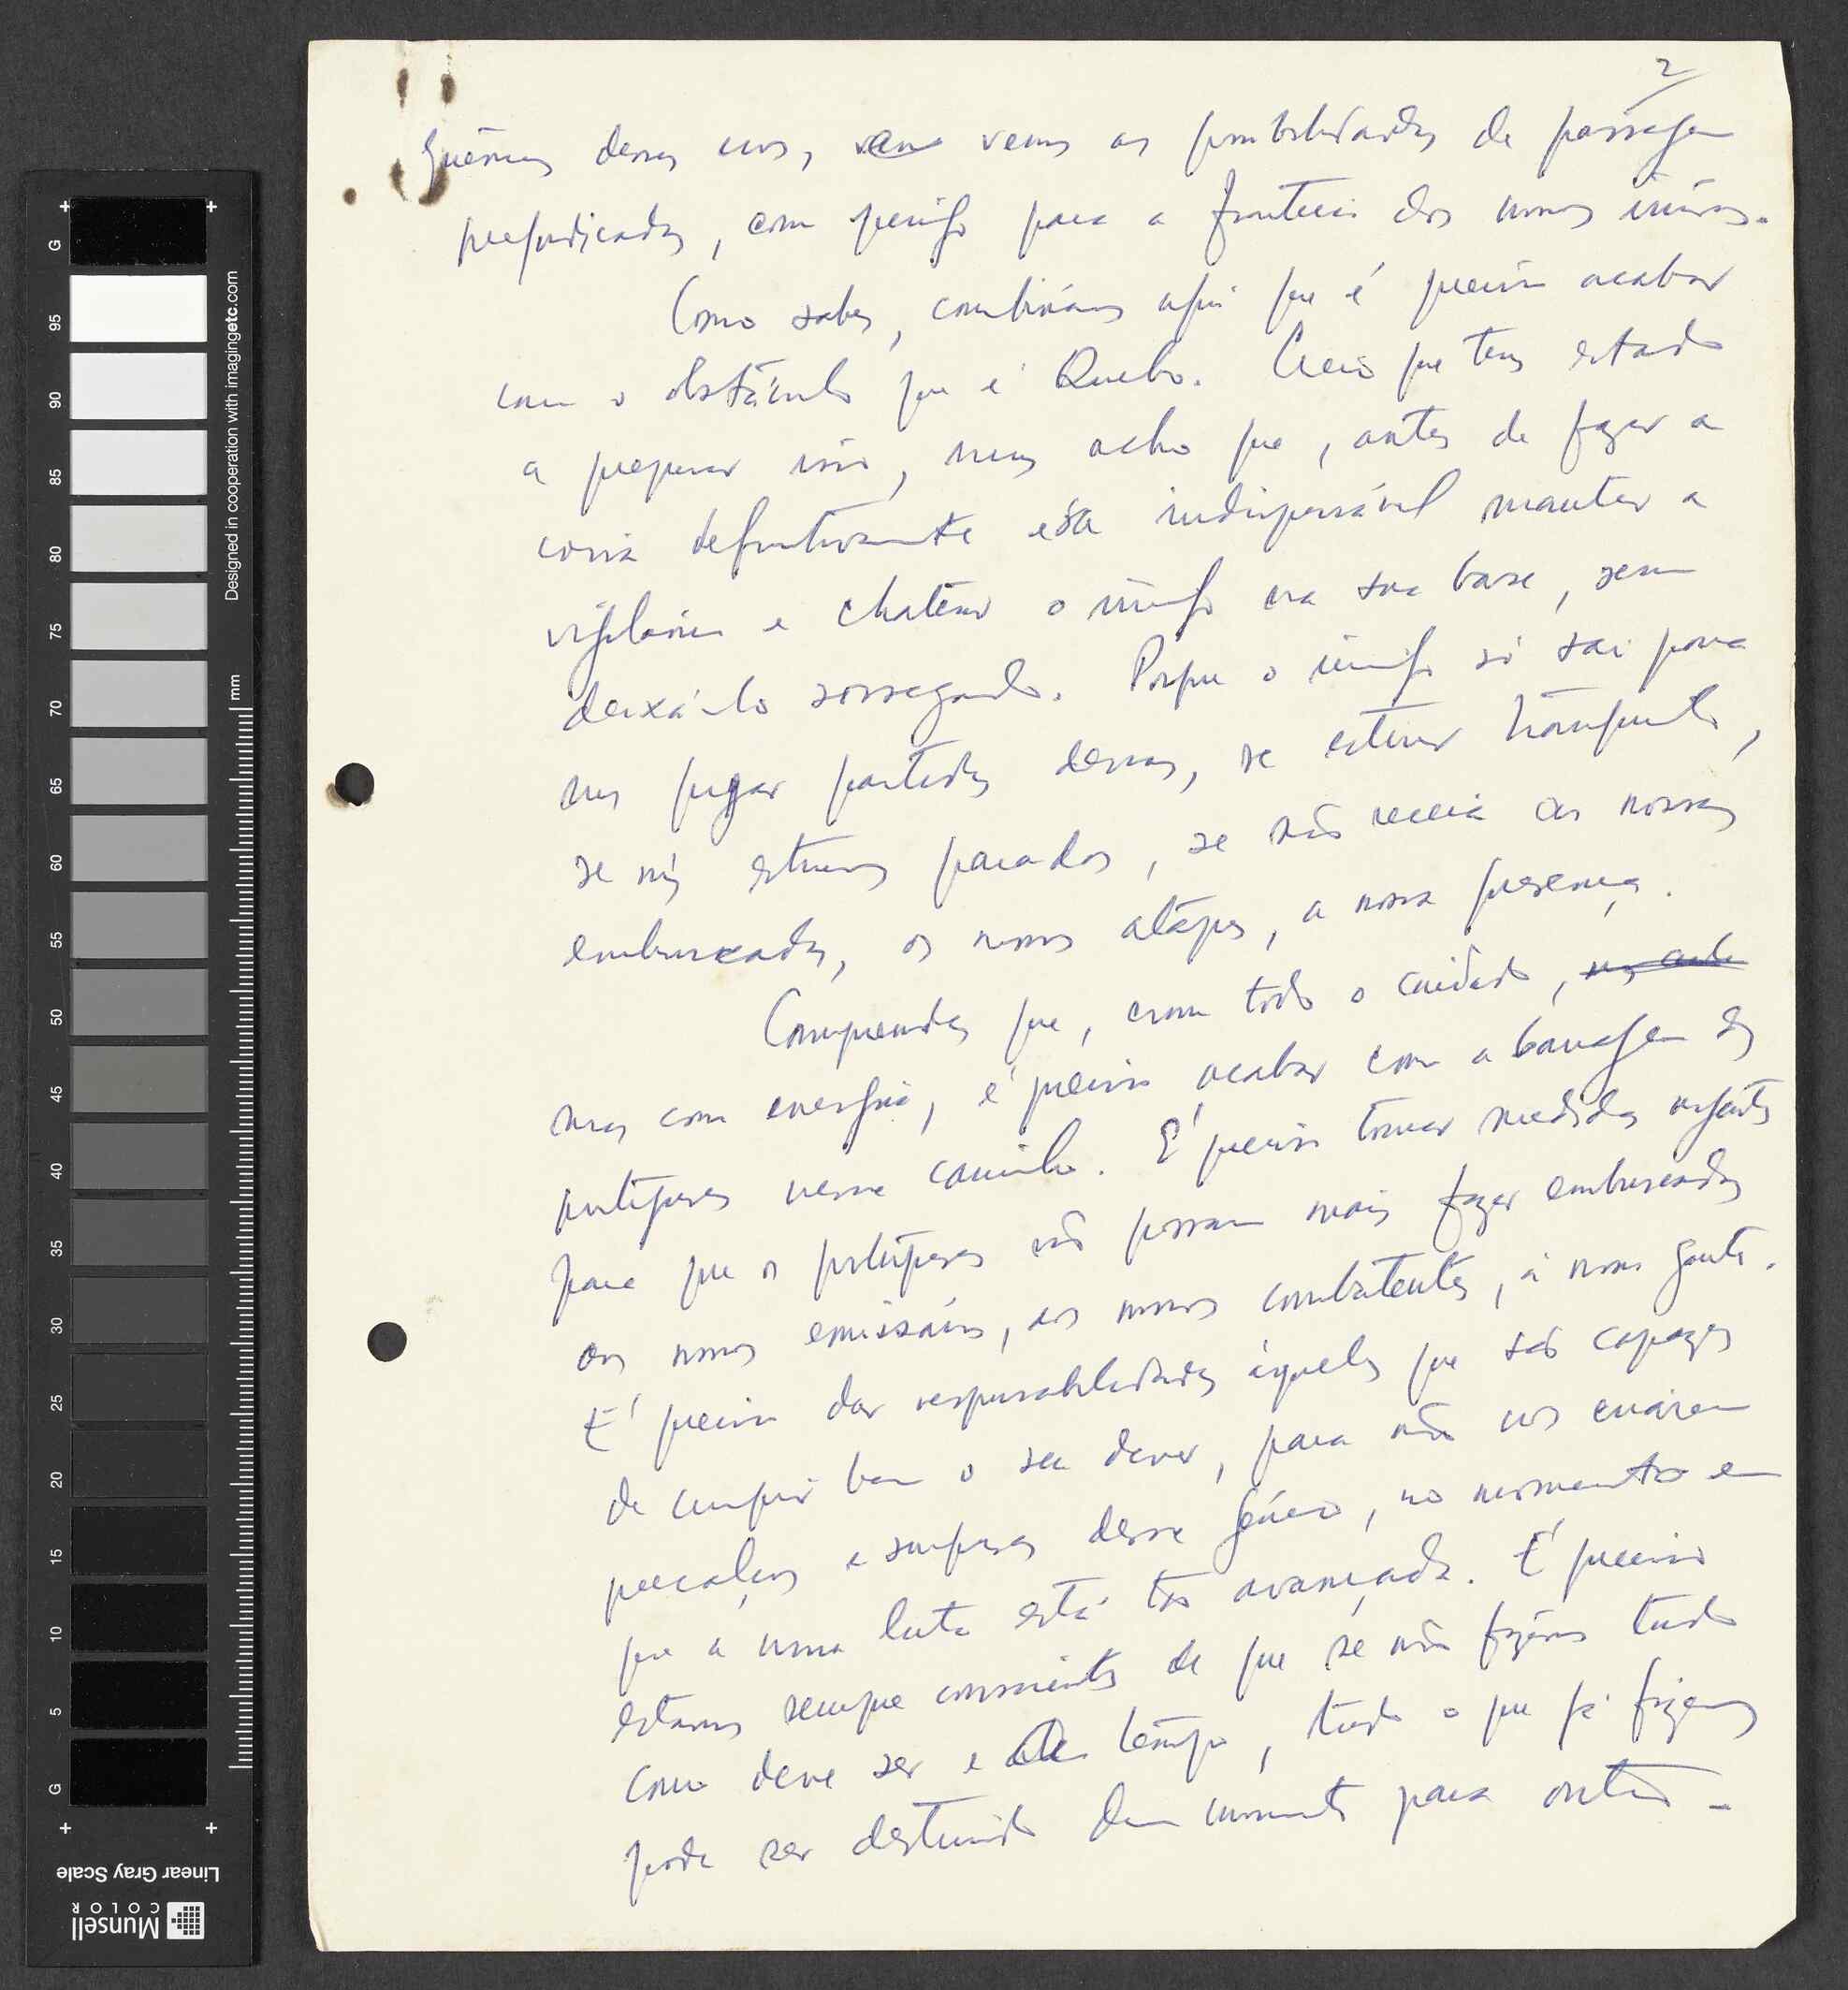 2
dessas, vemos as possibilidades de passagem
prejudicadas, com perigo para a fronteira dos nossos
Como sabes, combinámos aqui que é preciso acabar
com o obstáculo que é Quebo. Creio que tens estado
a preparar isso, mas acho que, antes de fazer a
coisa definitivamente é indispensável manter a
vigilância e chatear o inimigo na sua base, sem
deixá-lo sossegado. Porque o inimigo só sai para
nos pregar partidas dessas, se estiver tranquilo,
se nós estivermos parados, se não receia as nossas
emboscadas, os nossos ataques, a nossa presença.
Compreendes que, com todo o cuidado,
mas com energia, é preciso acabar com a barragem dos
portugueses nesse caminho. É preciso tomar medidas urgentes
para que os portugueses não possam mais fazer emboscadas
aos nossos emissários, aos nossos combatentes, à nossa gente.
É preciso dar responsabilidades àqueles que são capazes
de cumprir bem o seu dever, para não nos criarem
percalços e surpresas desse género, no momento em
que a nossa luta está tão avançada. É preciso
estarmos sempre conscientes de que se não fizermos tudo
como deve ser e a tempo, tudo o que já fizemos
pode ser destruido dum momento para outro.
G
95
90
85
80
75
70
65
60
55
50
45
40
35
30
25
20
15
10
5
G
mm
Designed in cooperation with imagingetc.com
Linear Gray Scale
Munsell
COLOR